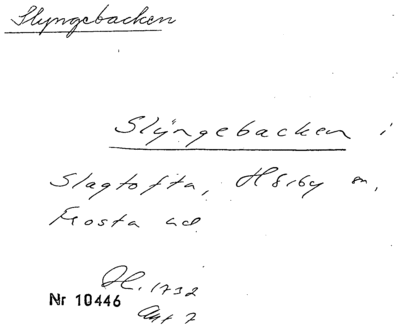 Slyngebacken
Slyngebacken i
Slagtofta, Hörby sn,
Frosta hd
1732
Nr 10446
Akt 7